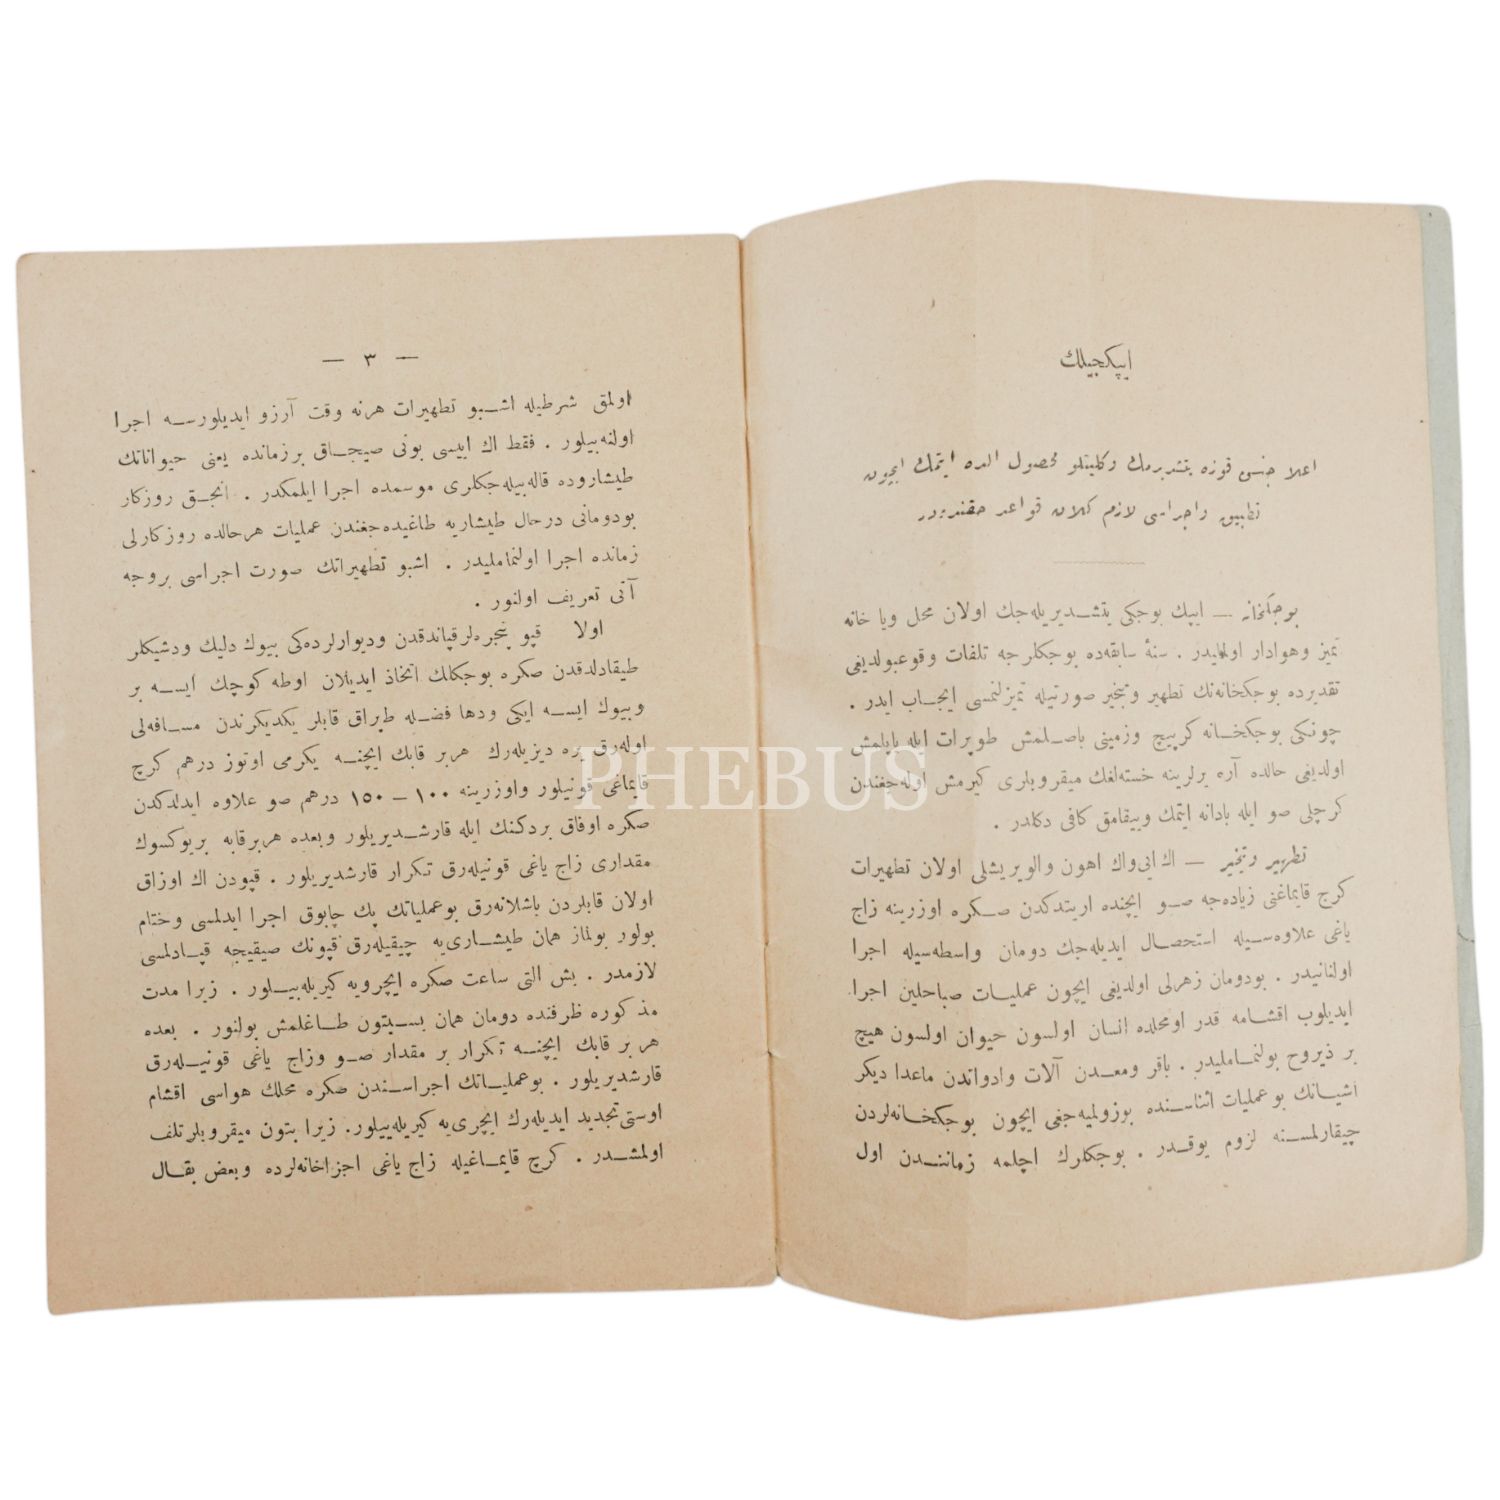 ایپكجیلك
اعلا جنس قوزه یتشدیرمك وكلیتلو محصول الده ایتمك ایچون
تطبیق واجراسی لازم كلان قواعد حقنده در
بوجكخانه — ایپك بوجكی یتشدیریله‌جك اولان محل ویا خانه
تمیز وهوادار اولملیدر . سنهٔ سابقه‌ده بوجكلرجه تلفات وقوعبولدیغی
تقدیرده بوجكخانه‌نك تطهیر وتبخیر صورتیله تمیزلنمسی ایجاب ایدر .
چونكی بوجكخانه كرپیچ وزمینی باصلمش طوپرات ایله یاپلمش
اولدیغی حالده آره یرلرینه خسته‌لغك میقروبلری كیرمش اوله‌جغندن
كرچلی صو ایله بادانه ایتمك وییقامق كافی دكلدر .
تطهیر وتبخیر — اك ایی واك اهون والویریشلی اولان تطهیرات
كرج قایماغنی زیاده‌جه صو ایچنده اریتدكدن صكره اوزرینه زاج
یاغی علاوه‌سیله استحصال ایدیله‌جك دومان واسطه‌سیله اجرا
اولنانیدر . بودومان زهرلی اولدیغی ایچون عملیات صباحلین اجرا
ایدیلوب اقشامه قدر اومحلده انسان اولسون حیوان اولسون هیچ
بر ذیروح بولنماملیدر . باقر ومعدن آلات وادواتدن ماعدا دیكر
اشیانك بوعملیات اثناسنده بوزولمیه‌جغی ایچون بوجكخانه‌لردن
چیقارلمسنه لزوم یوقدر . بوجكلرك اچلمه زماننندن اول
— ٣ —
اولمق شرطیله اشبو تطهیرات هرنه وقت آرزو ایدیلورسه اجرا
اولنه‌بیلور . فقط اك اییسی بونی صیجاق برزمانده یعنی حیواناتك
طیشاروده قاله‌بیله‌جكلری موسمده اجرا ایلمكدر . انجق روزكار
بودومانی درحال طیشاریه طاغیده‌جغندن عملیات هرحالده روزكارلی
زمانده اجرا اولنماملیدر . اشبو تطهیراتك صورت اجراسی بروجه
آتی تعریف اولنور .
اولا قپو پنجره‌لر قپاندقدن ودیوارلرده‌كی بیوك دلیك ودشیكلر
طیقادلدقدن صكره بوجكلك اتخاذ ایدیلان اوطه كوچك ایسه بر
وبیوك ایسه ایكی ودها فضله طپراق قابلر یكدیكرندن مسافه‌لی
اوله‌رق یره دیزیله‌رك هربر قابك ایچنه یكرمی اوتوز درهم كرچ
قایماغی قونیلور واوزرینه ١٠٠ — ١٥٠ درهم صو علاوه ایدلدكدن
صكره اوفاق بردكنك ایله قارشدیریلور وبعده هربرقابه بریوكسوك
مقداری زاج یاغی قونیله‌رق تكرار قارشدیریلور . قپودن اك اوزاق
اولان قابلردن باشلانه‌رق بوعملیاتك پك چابوق اجرا ایدلمسی وختام
بولور بولماز همان طیشاری‌یه چیقیله‌رق قپونك صیقیجه قپادلمسی
لازمدر . بش التی ساعت صكره ایچرویه كیریله‌بیلور . زیرا مدت
مذكوره ظرفنده دومان همان بسبتون طاغلمش بولنور . بعده
هر بر قابك ایچنه تكرار بر مقدار صو وزاج یاغی قونیله‌رق
قارشدیریلور . بوعملیاتك اجراسندن صكره محلك هواسی اقشام
اوستی تجدید ایدیله‌رك ایچری‌یه كیریله‌بیلور. زیرا بتون میقروبلر تلف
اولمشدر . كرچ قایماغیله زاج یاغی اجزاخانه‌لرده وبعض بقال
PHEBUS